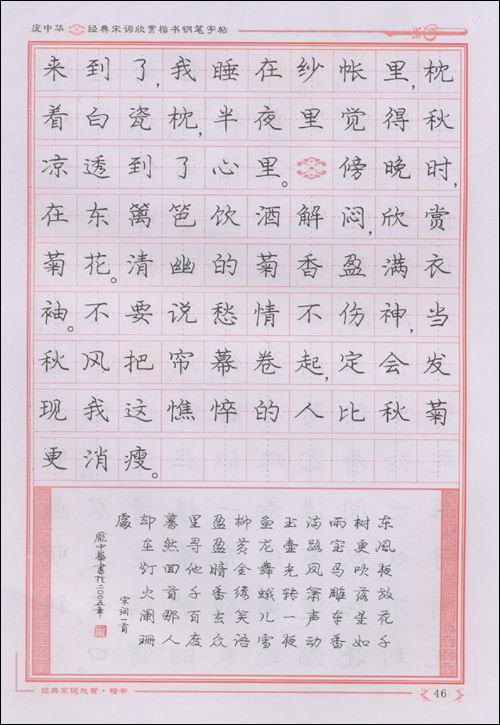 庞中华 经典宋词欣赏楷书钢笔字帖
来到了,我睡在纱帐里,枕
着白瓷枕,半夜里觉得秋
凉透到了心里。傍晚时,
在东篱笆饮酒解闷,欣赏
菊花。清幽的菊香盈满衣
袖。不要说愁情不伤神,当
秋风把帘幕卷起,定会发
现我这憔悴的人比秋菊
更消瘦。
东风夜放花千
树更吹落星如
雨宝马雕车香
满路凤箫声动
玉壶光转一夜
鱼龙舞蛾儿雪
柳黄金缕笑语
盈盈暗香去众
里寻他千百度
蓦然回首那人
却在灯火阑珊
處
宋词一首
庞中华书于二00五年
经典宋词欣赏·楷书
46